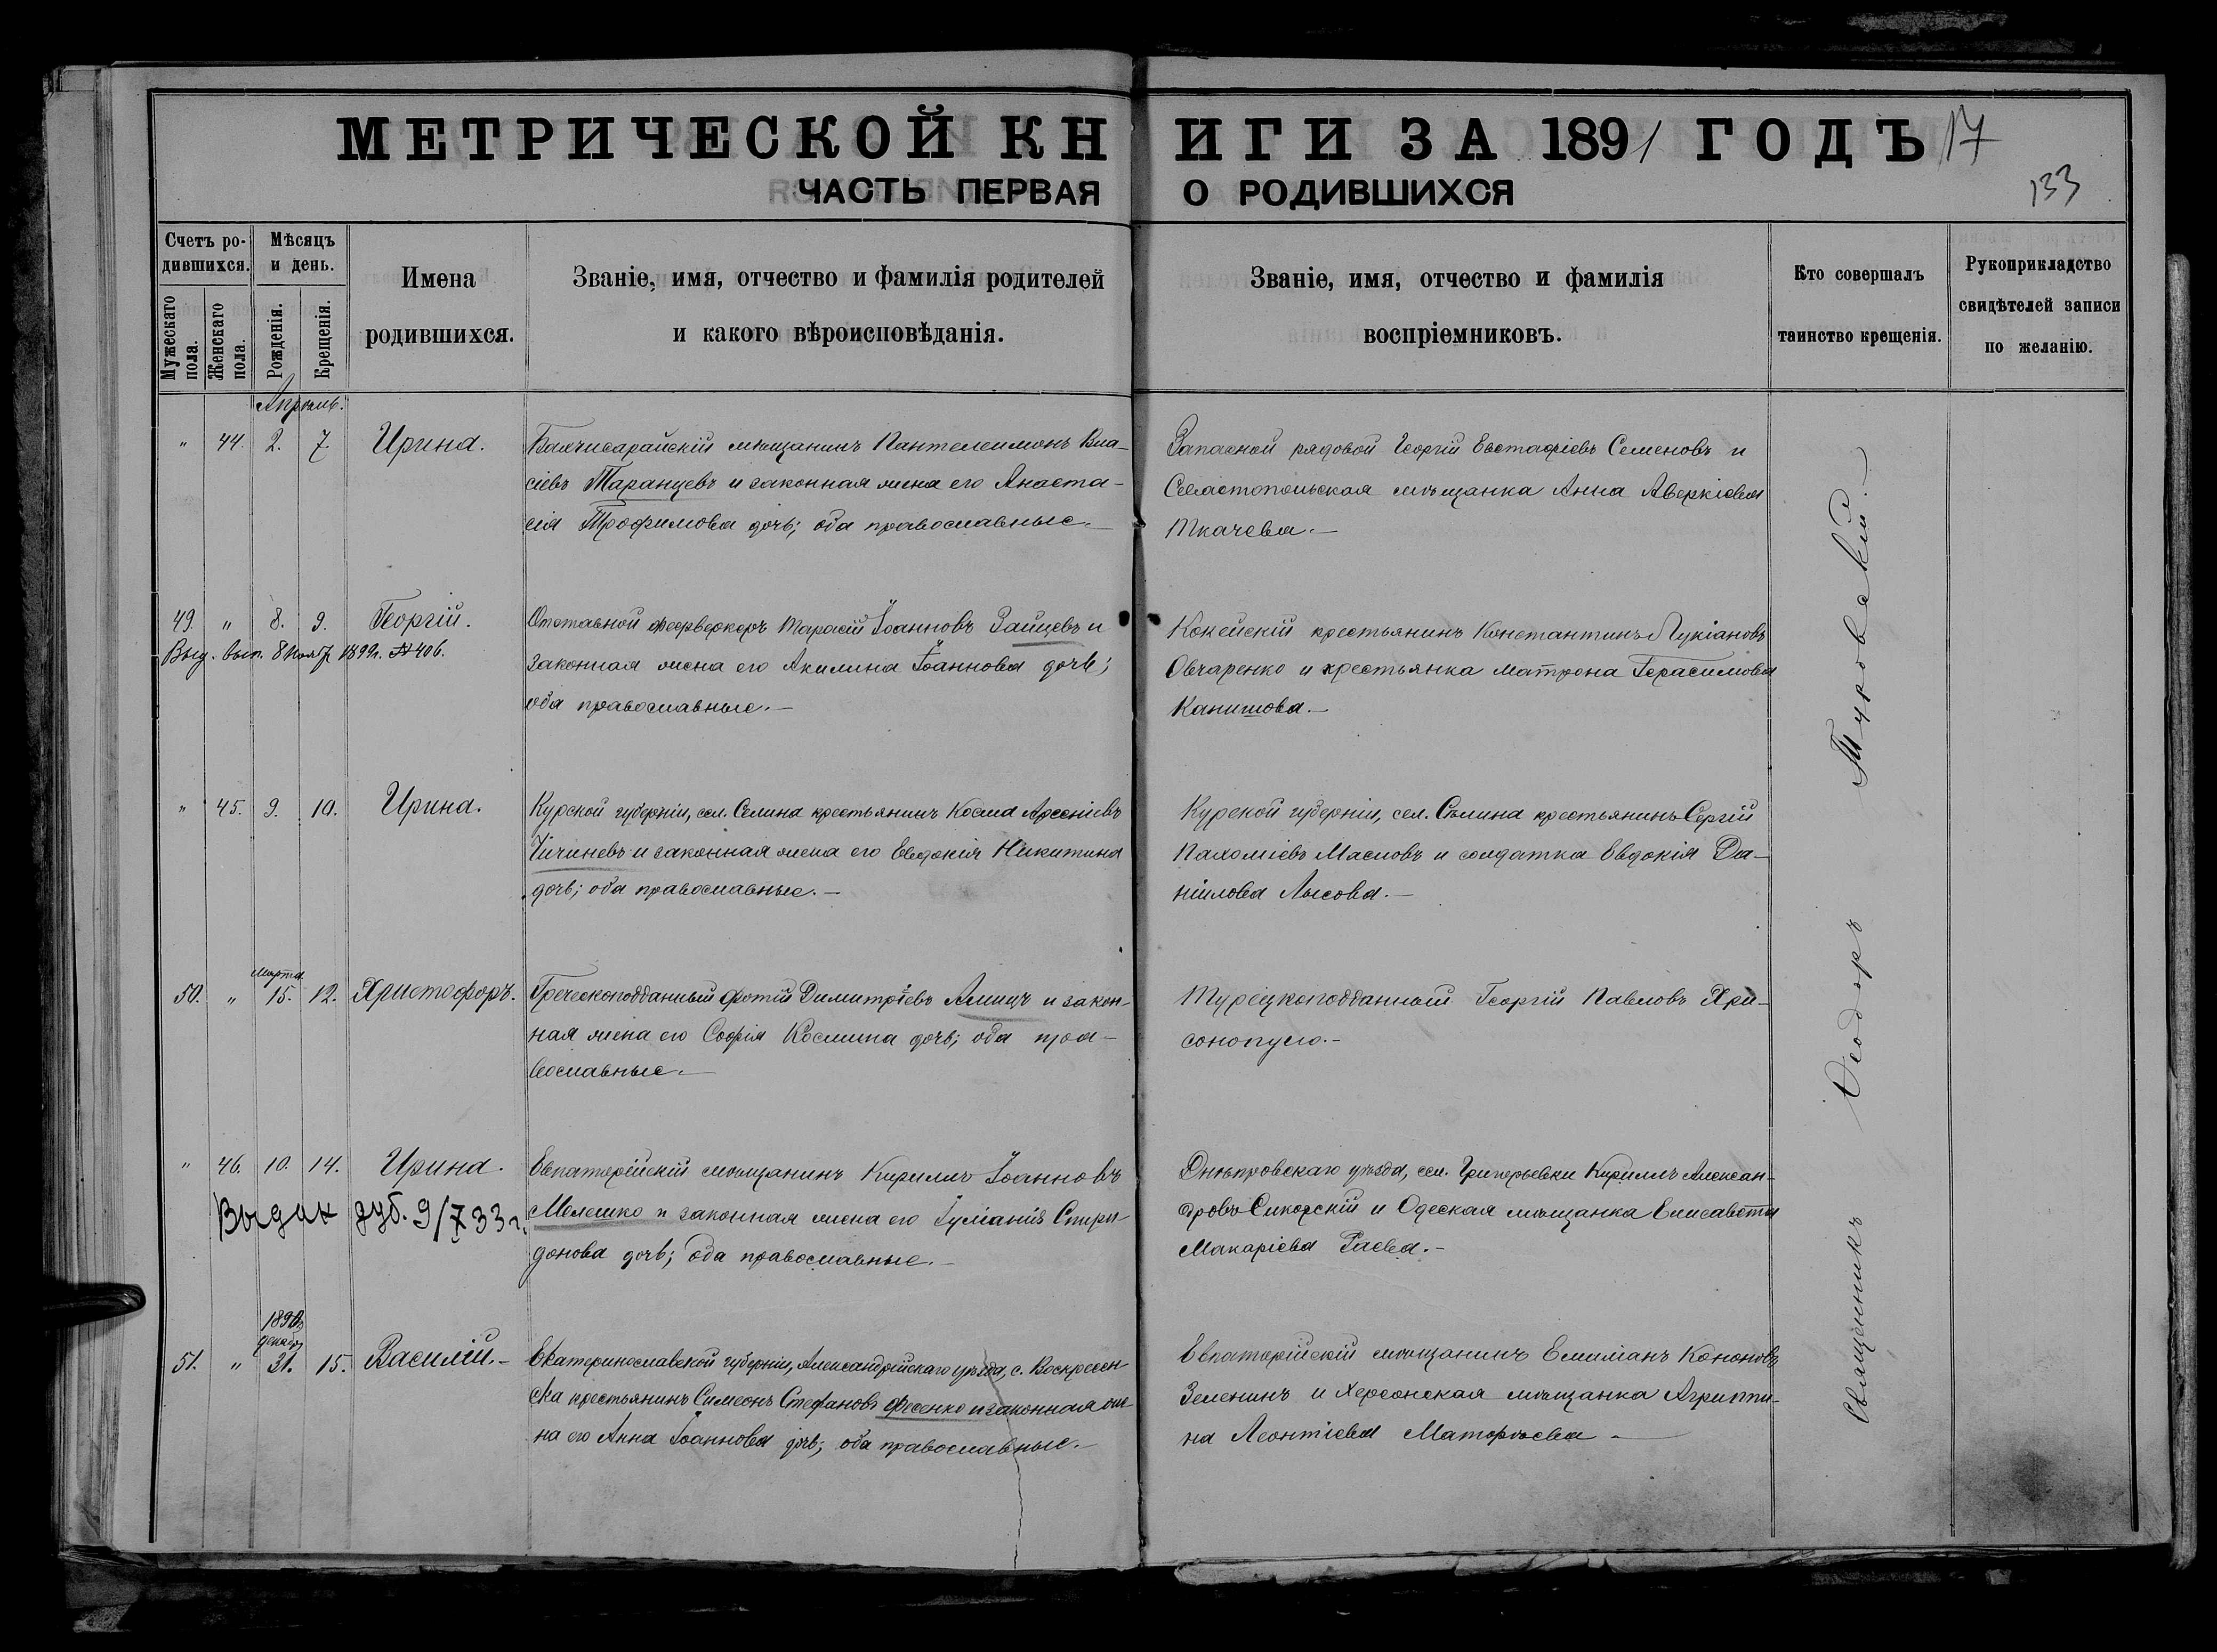 МЕТРИЧЕСКОЙ КНИГИ ЗА 1891 ГОДЪ 17
133
ЧАСТЬ ПЕРВАЯ О РОДИВШИХСЯ
Счетъ ро-
дившихся.
Мужескаго пола.
Женскаго пола.
Мѣсяцъ
и день.
Рожденія.
Крещенія.
Имена
родившихся.
Званіе, имя, отчество и фамилія родителей
и какого вѣроисповѣданія.
Званіе, имя, отчество и фамилія
воспріемниковъ.
Кто совершалъ
таинство крещенія.
Рукоприкладство
свидѣтелей записи
по желанію.
Апрѣль.
" 44. 2. 7. Ирина.
Бахчисарайскій мѣщанинъ Пантелеимонъ Вла-
сіевъ Таранцевъ и законная жена его Анаста-
сія Трофимова дочь; оба православные.—
Запасной рядовой Георгій Евстафіевъ Семеновъ и
Севастопольская мѣщанка Анна Аверкіева
Ткачева.—
49. " 8. 9. Георгій.
Выд. вып. 8 нояб. 1899г. № 406.
Отставной феерверкеръ Тарасій Іоанновъ Зайцевъ и
законная жена его Акилина Іоаннова дочь;
оба православные.—
Крестьянинъ Константинъ Лукіановъ
Овчаренко и крестьянка Матрона Герасимова
Канишова.—
" 45. 9. 10. Ирина.
Курской губерніи, сел. Селина крестьянинъ Косма Арсеніевъ
Чичиневъ и законная жена его Евдокія Никитина
дочь; оба православные.—
Курской губерніи, сел. Сѣлина крестьянинъ Сергій
Пахоміевъ Масловъ и солдатка Евдокія Да-
ніилова Лысова.—
Марта
50. " 15. 12. Христофоръ.
Греческоподданный Фотій Димитріевъ и закон-
ная жена его Софія Космина дочь; оба пра-
вославные.—
Турецкоподданный Георгій Павловъ Хри-
сонопуло.—
" 46. 10. 14. Ирина.
Выдан дуб. 9/733г.
Евпаторійскій мѣщанинъ Кириллъ Іоанновъ
Мелешко и законная жена его Іуліанія Спири-
донова дочь; оба православные.—
Днѣпровскаго уѣзда, сел. Кириллъ Алексан-
дровъ Сикорскій и Одесская мѣщанка Елисавета
Макаріева Гаева.—
1890г.
декабр.
51. " 31. 15. Василій.—
Екатеринославской губерніи, Александрійскаго уѣзда, с. Воскресен-
ска крестьянинъ Симеонъ Стефановъ Фесенко и законная же-
на его Анна Іоаннова дочь; оба православные.—
Евпаторійскій мѣщанинъ Емиліанъ Кононовъ
Зеленинъ и Херсонская мѣщанка Агриппи-
на Леонтіева
Священникъ Ѳеодоръ Туровскій.—